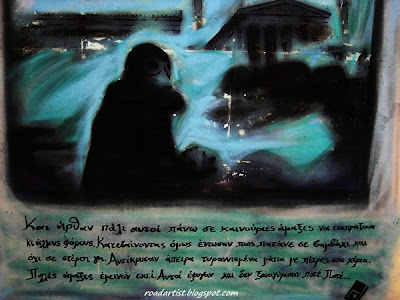 Και ήρθαν πάλι αυτοί πάνω σε καινούριες άμαξες να εισπράξουν
κι άλλους φόρους. Κατεβαίνοντας όμως ένιωσαν πως πατάνε σε βαμβάκι και
όχι σε στέρεη γη. Αντίκρυσαν άπειρα τυραννισμένα μάτια με πέτρες στα χέρια.
Πολλές άμαξες έμειναν εκεί. Αυτοί έφυγαν και δεν ξαναγύρισαν ποτέ. Ποτέ...
roadartist.blogspot.com